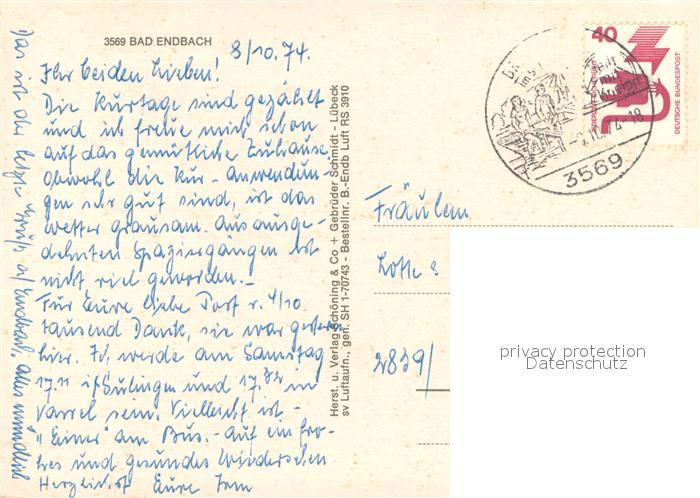 3569 BAD ENDBACH
8/10.74.
Ihr beiden Lieben!
Die Kurtage sind gezählt
und ich freue mich schon
auf das gemütliche Zuhause
obwohl die Kur-Anwendun-
gen sehr gut sind, ist das
Wetter grausam. Aus ausge-
dehnten Spaziergängen ist
nicht viel geworden.-
Für Eure liebe Post v. 4/10
tausend Dank, sie war gestern
hier. Ich werde am Samstag
17.11 i/Sulingen und 17.32 in
Varrel sein. Vielleicht ist -
"Einer" am Bus.- Auf ein fro-
hes und gesundes Wiedersehen
Herzlichst Eure
Das ist der letzte Gruß a/Endbach, alles mündlich
Herst. u. Verlag Schöning & Co + Gebrüder Schmidt - Lübeck
sv Luftaufn., gen. SH 1-70743 - Bestellnr. B.-Endb Luft RS 3910
40
DEUTSCHE BUNDESPOST
3569
Fräulein
Lotte
2839/
privacy protection
Datenschutz